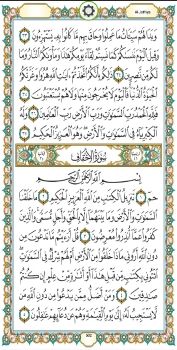 Al-Jathiya
وَبَدَا لَهُمْ سَيِّـَٔاتُ مَا عَمِلُوا۟ وَحَاقَ بِهِم مَّا كَانُوا۟ بِهِۦ يَسْتَهْزِءُونَ ٣٣
وَقِيلَ ٱلْيَوْمَ نَنسَىٰكُمْ كَمَا نَسِيتُمْ لِقَآءَ يَوْمِكُمْ هَٰذَا وَمَأْوَىٰكُمُ ٱلنَّارُ وَمَا
لَكُم مِّن نَّٰصِرِينَ ٣٤ ذَٰلِكُم بِأَنَّكُمُ ٱتَّخَذْتُمْ ءَايَٰتِ ٱللَّهِ هُزُوًا وَغَرَّتْكُمُ
ٱلْحَيَوٰةُ ٱلدُّنْيَا فَٱلْيَوْمَ لَا يُخْرَجُونَ مِنْهَا وَلَا هُمْ يُسْتَعْتَبُونَ ٣٥
فَلِلَّهِ ٱلْحَمْدُ رَبِّ ٱلسَّمَٰوَٰتِ وَرَبِّ ٱلْأَرْضِ رَبِّ ٱلْعَٰلَمِينَ ٣٦ وَلَهُ
ٱلْكِبْرِيَآءُ فِى ٱلسَّمَٰوَٰتِ وَٱلْأَرْضِ وَهُوَ ٱلْعَزِيزُ ٱلْحَكِيمُ ٣٧
سُورَةُ الأَحْقَافِ
بِسْمِ ٱللَّهِ ٱلرَّحْمَٰنِ ٱلرَّحِيمِ
حمٓ ١ تَنزِيلُ ٱلْكِتَٰبِ مِنَ ٱللَّهِ ٱلْعَزِيزِ ٱلْحَكِيمِ ٢ مَا خَلَقْنَا
ٱلسَّمَٰوَٰتِ وَٱلْأَرْضَ وَمَا بَيْنَهُمَآ إِلَّا بِٱلْحَقِّ وَأَجَلٍ مُّسَمًّى وَٱلَّذِينَ
كَفَرُوا۟ عَمَّآ أُنذِرُوا۟ مُعْرِضُونَ ٣ قُلْ أَرَءَيْتُم مَّا تَدْعُونَ مِن
دُونِ ٱللَّهِ أَرُونِى مَاذَا خَلَقُوا۟ مِنَ ٱلْأَرْضِ أَمْ لَهُمْ شِرْكٌ فِى ٱلسَّمَٰوَٰتِ
ٱئْتُونِى بِكِتَٰبٍ مِّن قَبْلِ هَٰذَآ أَوْ أَثَٰرَةٍ مِّنْ عِلْمٍ إِن كُنتُمْ
صَٰدِقِينَ ٤ وَمَنْ أَضَلُّ مِمَّن يَدْعُوا۟ مِن دُونِ ٱللَّهِ مَن
لَّا يَسْتَجِيبُ لَهُۥٓ إِلَىٰ يَوْمِ ٱلْقِيَٰمَةِ وَهُمْ عَن دُعَآئِهِمْ غَٰفِلُونَ ٥